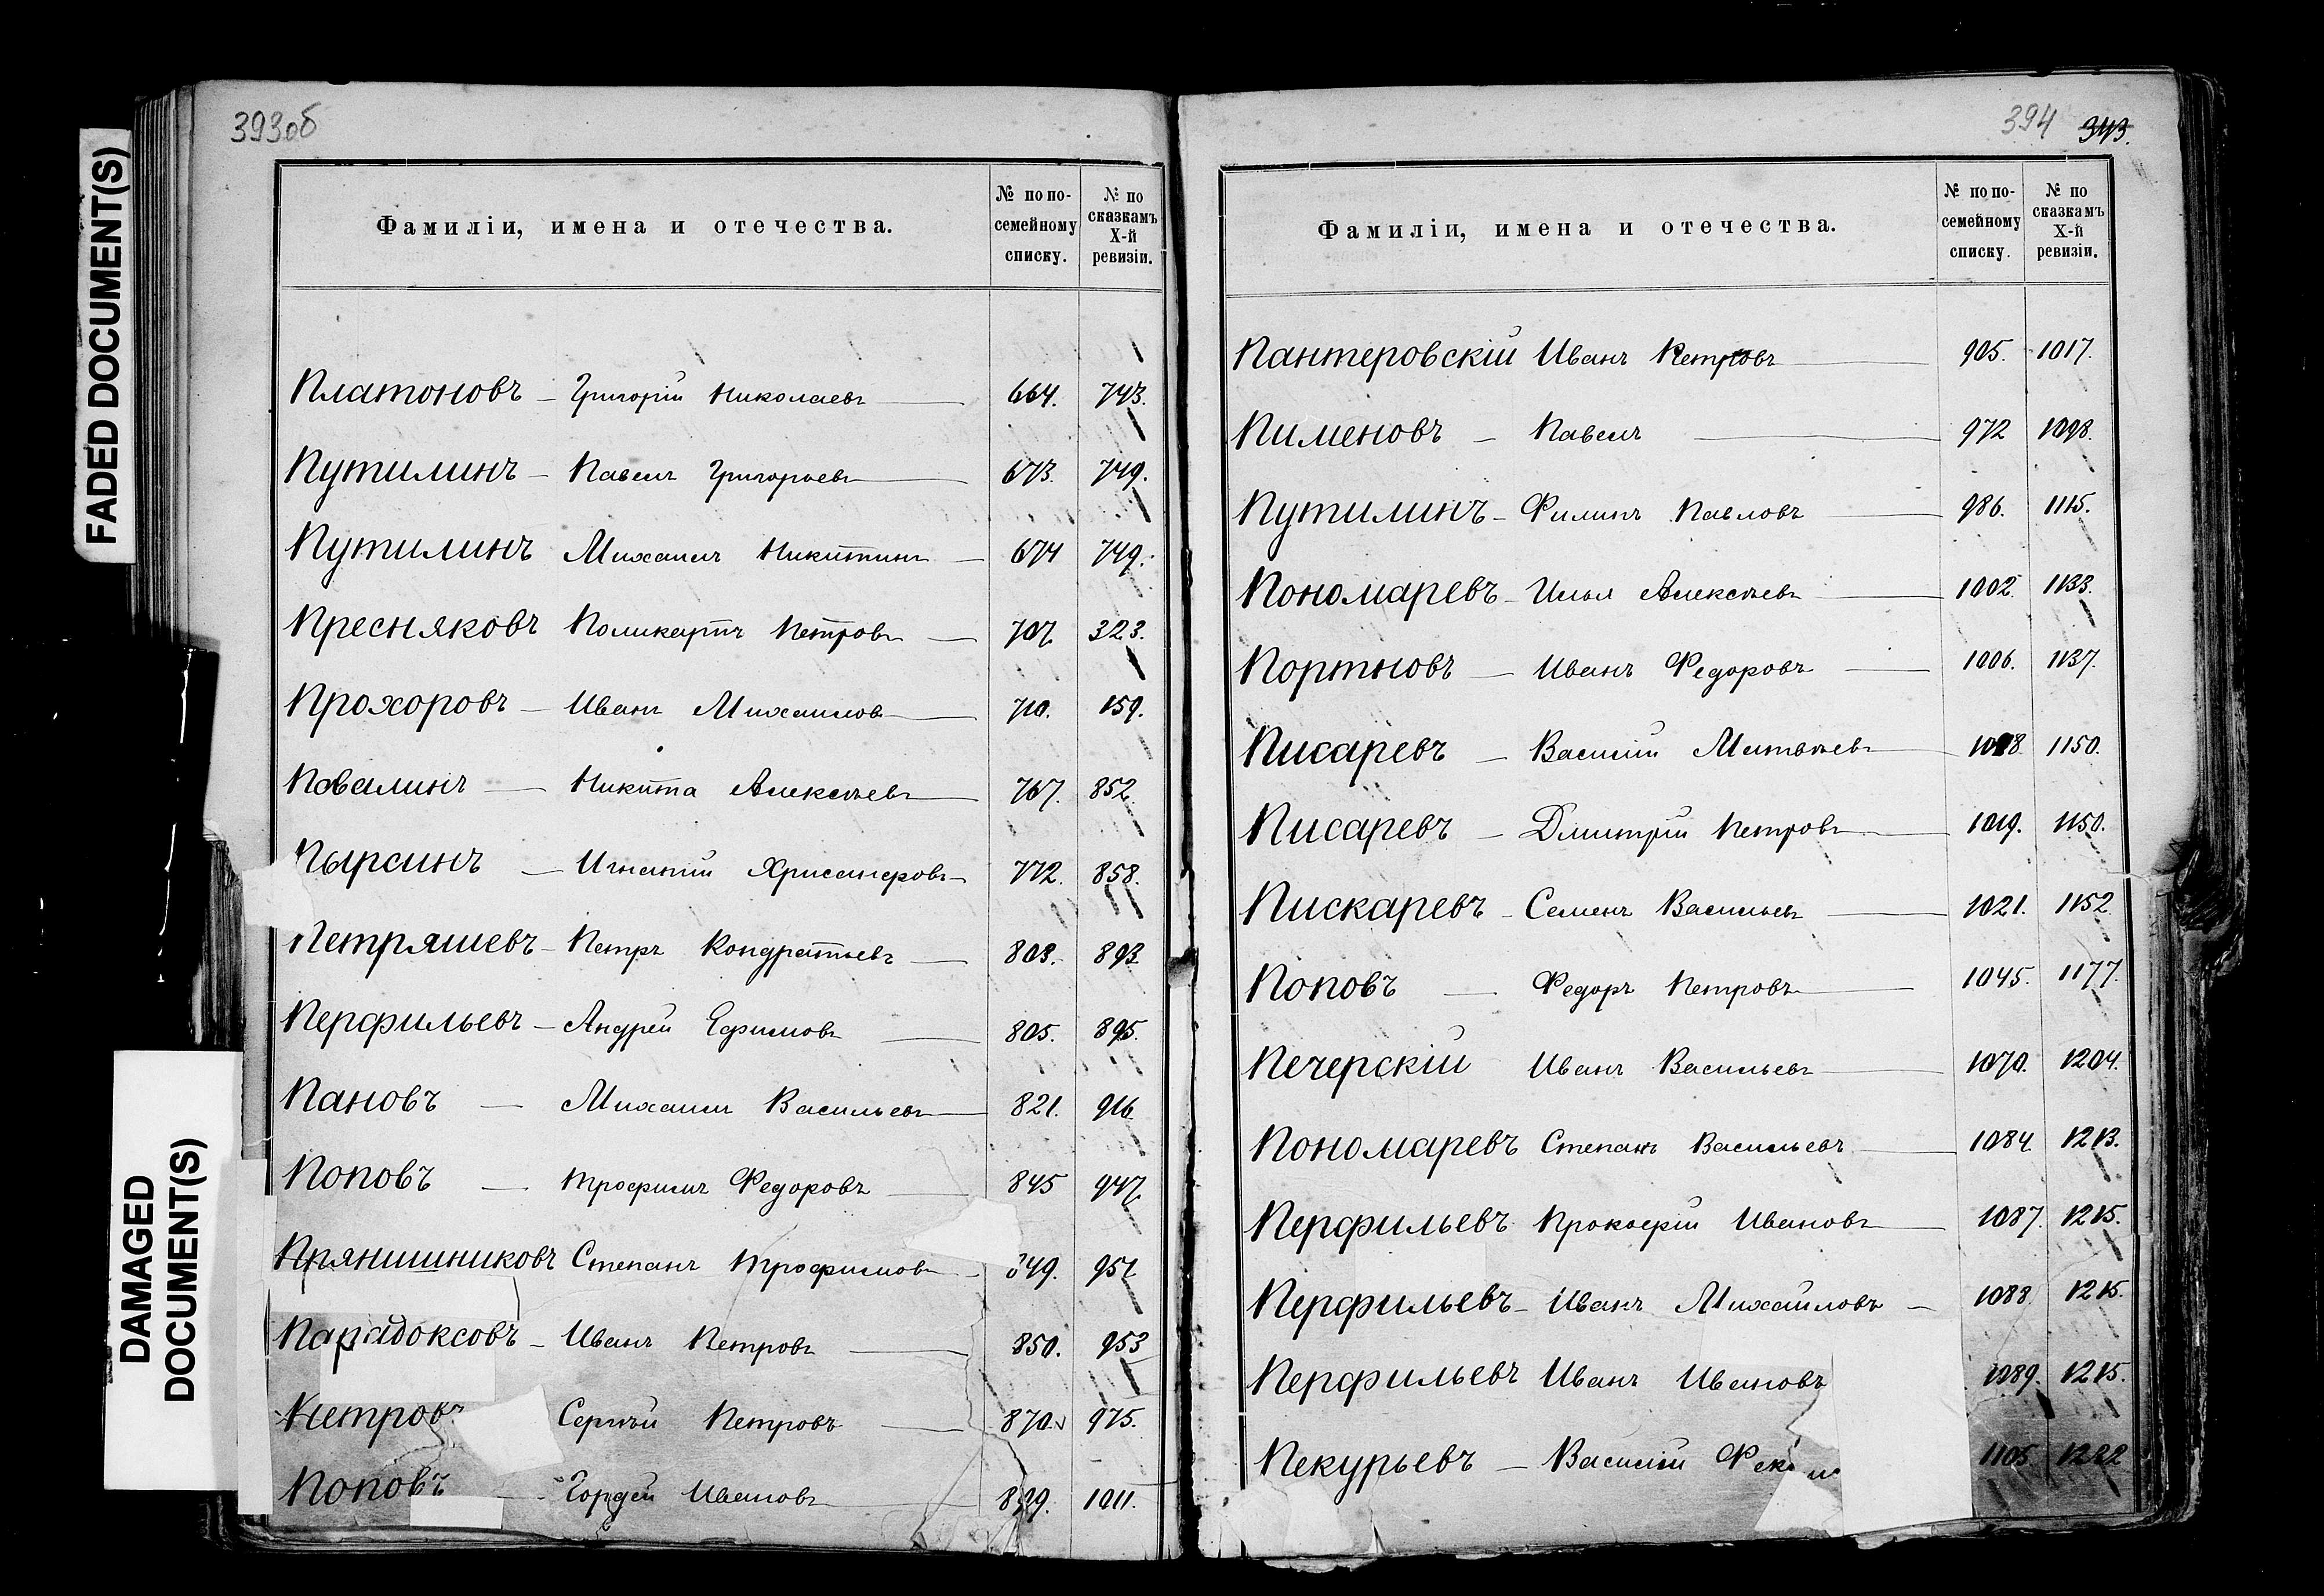 393об
FADED DOCUMENT(S)
DAMAGED DOCUMENT(S)
Фамиліи, имена и отечества. № по посемейному списку. № по сказкамъ X-й ревизіи.
Платоновъ — Григорій Николаевъ — 664. 743.
Путилинъ — Павелъ Григорьевъ — 673. 749.
Путилинъ Михаилъ Никитинъ — 674 749.
Пресняковъ Поликарпъ Петровъ — 707. 323.
Прохоровъ — Иванъ Михаиловъ — 710. 159.
Повалинъ — Никита Алексѣевъ — 767. 852.
Пырсинъ — Игнатій Хрисанфровъ — 772. 858.
Петряшевъ — Петръ Кондратьевъ — 803. 893.
Перфильевъ — Андрей Ефимовъ — 805. 895.
Пановъ — Михаилъ Васильевъ — 821. 916.
Поповъ — Трофимъ Федоровъ — 845 947.
Прянишниковъ Степанъ Трофимовъ — 849. 951.
Парадоксовъ — Иванъ Петровъ — 850. 953
Петровъ Сергѣй Петровъ — 870. 975.
Поповъ — Гордей Ивановъ — 899. 1011.
394 343.
Фамиліи, имена и отечества. № по посемейному списку. № по сказкамъ X-й ревизіи.
Пантеровскій Иванъ Петровъ — 905. 1017.
Пименовъ — Павелъ — 972 1098.
Путилинъ — Филипъ Павловъ — 986. 1115.
Пономаревъ — Илья Алексѣевъ — 1002. 1133.
Портновъ — Иванъ Федоровъ — 1006. 1137.
Писаревъ — Василій Матвѣевъ — 1018. 1150.
Писаревъ — Дмитрій Петровъ — 1019. 1150.
Пискаревъ — Семенъ Васильевъ — 1021. 1152.
Поповъ — Федоръ Петровъ — 1045. 1177.
Печерскій Иванъ Васильевъ — 1070. 1204.
Пономаревъ Степанъ Васильевъ — 1084. 1213.
Перфильевъ Прокофій Ивановъ — 1087. 1215.
Перфильевъ — Иванъ Михайловъ — 1088. 1215.
Перфильевъ Иванъ Ивановъ 1089. 1215.
Пекурьевъ — Василій 1105 1222